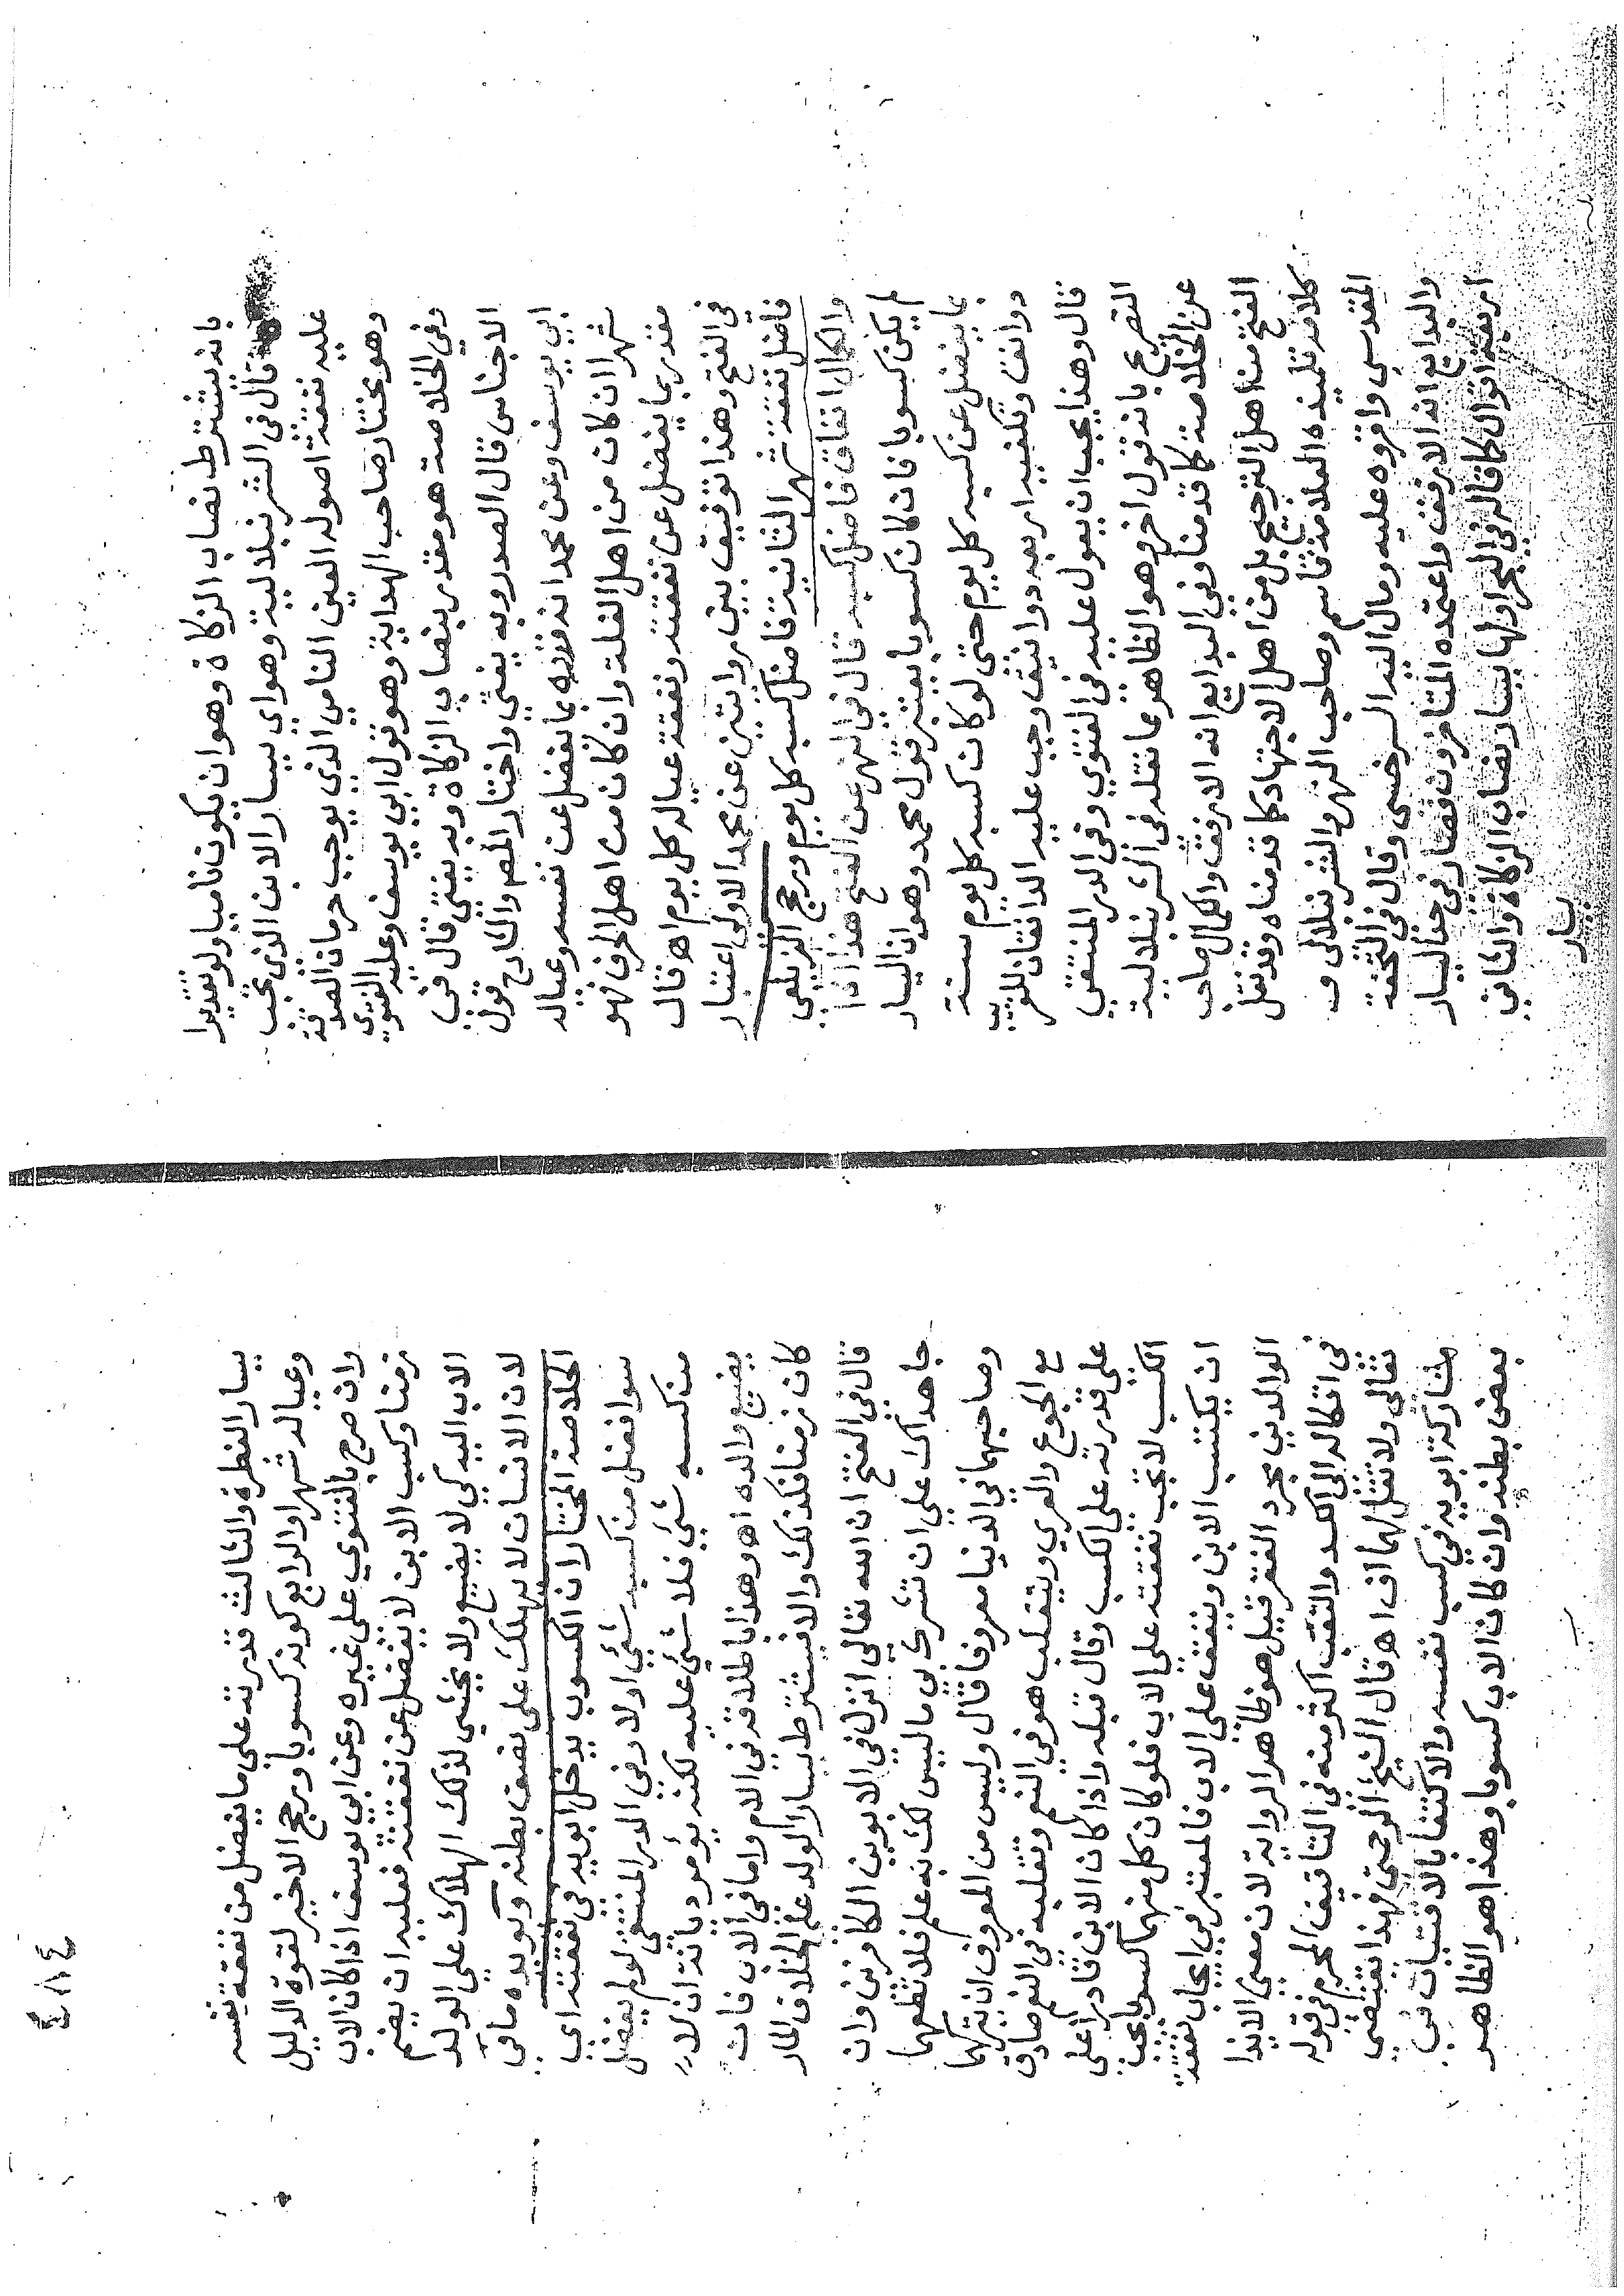 بانه يشترط نصاب الزكاة وهو ان يكون ناميا ولو تقديرا
قال في الشرنبلالية وهو اي يسار الابن الذي تجب
عليه نفقة اصوله الغني الناس الذي يوجب حرمان الصدقة
وهو مختار صاحب الهداية وهو قول ابي يوسف وعليه الفتوي
وفي الخلاصة هو مقدر بنصاب الزكاة وبه يفتي قال في
الاجناس قال الصدر وبه يفتي واختار المص والشارح قول
ابي يوسف وعن محمد انه قدره بما يفضل عن نفسه وعياله
شهرا ان كان من اهل الغلة وان كان من اهل الحرف فهو
مقدر بما يفضل عن نفقته ونفقة عياله كل يوم اهـ قال
في الفتح وهذا توفيق بين روايتين عن محمد الاولي اعتبار
فاضل نفقة شهر الثانية فاضل كسبه كل يوم ورجح الزيلعي
والكمال انفاق فاضل كسبه قال في النهر عن الفتح هذا اذا
لم يكن كسوبا فان كان كسوبا يعتبر قول محمد وهو ان اليسار
بما يفضل عن كسبه كل يوم حتى لو كان كسبه كل يوم ستة
دوانق وتكفيه اربعة دوانيق وجب عليه الدانقان للقريب
قال وهذا يجب ان يعول عليه في الفتوي وفي الدر المنتقي
التصريح بانه قول اخر وهو الظاهر مما نقله في الشرنبلالية
عن الخلاصة كما قدمنا وفي البدايع انه الارفق والكمال صاحب
الفتح من اهل الترجيح بل من اهل الاجتهاد كما قدمناه وقد نقل
كلامه تلميذه العلامة قاسم وصاحب النهر والشرنبلالي و
المقدسي واقروه عليه ومال اليه السرخسي وقال في التحفة
والبدايع انه الارفق واعتمده المتاخرون فصار في حد اليسار
اربعة اقوال كما قال في البحر اولها يسار نصاب الزكاة والثاني
يسار
٤٨٤
يسار الفطرة والثالث قدرته علي ما يفضل من نفقة نفسه
وعياله شهرا والرابع كونه كسوبا ورجح الاخير لقوة الدليل
وان صرح بالفتوي علي غيره وعن ابي يوسف اذا كان الاب
زمنا وكسب الابن لا يفضل عن نفقته فعليه ان يضم
الاب اليه كي لا يضيع ولا يخشي لذلك الهلاك علي الولد
لان الانسان لا يهلك علي نصف بطنه ويويده ما في
الخلاصة المختار ان الكسوب يدخل ابويه في نفقته اي
سوا فضل من كسبه شئي او لا وفي الدر المنتقي لو لم يفضل
من كسبه شئي فلا شئي عليه لكنه يؤمر ديانة ان لا
يضيع والده اهـ وهذا باطلاقه في الام واما في الاب فان
كان زمنا فكذلك والا فيشترط يسار الولد علي الخلاف المار
قال في الفتح ان الله تعالي انزل في الابوين الكافرين وان
جاهداك علي ان تشرك بي ما ليس لك به علم فلا تطعهما
وصاحبهما في الدنيا معروفا قال وليس من المعروف ان يتركهما
مع الجوع والعري ويتقلب هو في النعم وتقلبه في النعم صادق
علي قدرته علي الكسب وقال قبله واذا كان الابن قادرا علي
الكسب لا تجب نفقته علي الاب فلو كان كل منهما كسوبا يجب
ان يكتسب الابن وينفق علي الاب فالمعتبر في ايجاب نفقة
الوالدين مجرد الفقر قيل هو ظاهر الرواية لان معني الايذا
في اتكاله الى الكد والتعب اكثر منه في التافيف المحرم في قوله
تعالي ولا تقل لهما اف اهـ قال الشيخ الرحمتي فهذا يقتضي
مشاركة ابويه في كسب نفسه والاكتفا بالاقتيات في
بعض بطنه وان كان الاب كسوبا وهذا هو الظاهر